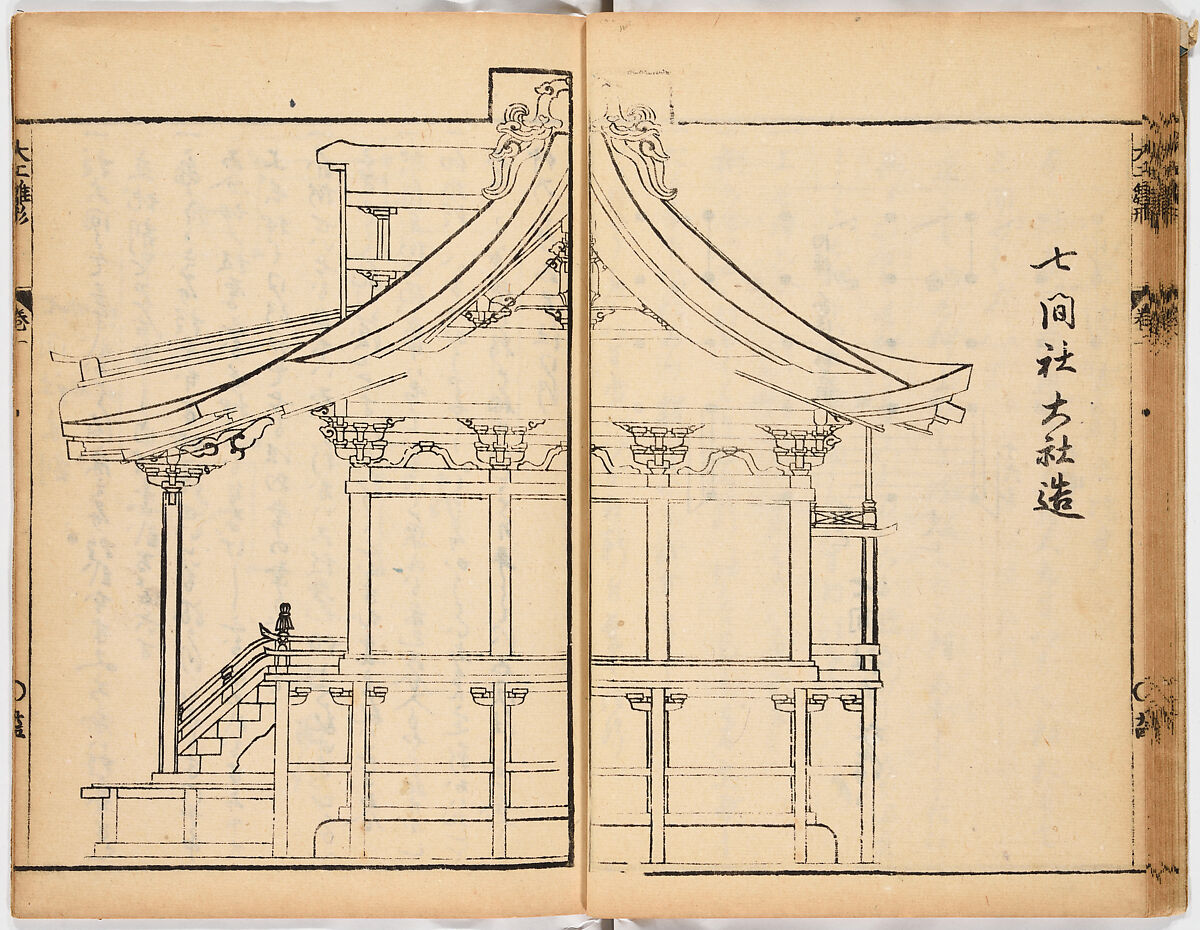 七間社大社造
大工雛形
巻
大工雛形
巻一